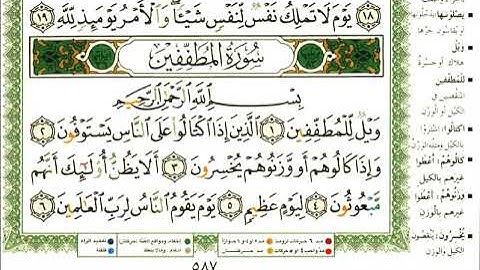 ١٨ يَوْمَ لَا تَمْلِكُ نَفْسٌ لِّنَفْسٍ شَيْئًا ۖ وَالْأَمْرُ يَوْمَئِذٍ لِّلَّهِ ١٩
سُورَةُ الْمُطَفِّفِينَ
بِسْمِ اللَّهِ الرَّحْمَٰنِ الرَّحِيمِ
وَيْلٌ لِّلْمُطَفِّفِينَ ١ الَّذِينَ إِذَا اكْتَالُوا عَلَى النَّاسِ يَسْتَوْفُونَ ٢
وَإِذَا كَالُوهُمْ أَو وَّزَنُوهُمْ يُخْسِرُونَ ٣ أَلَا يَظُنُّ أُولَٰئِكَ أَنَّهُم
مَّبْعُوثُونَ ٤ لِيَوْمٍ عَظِيمٍ ٥ يَوْمَ يَقُومُ النَّاسُ لِرَبِّ الْعَالَمِينَ ٦
٥٨٧
يصلونها
ويل
هلاك أو حسرة
للمطففين
المنقصين في
الكيل أو الوزن
اكتالوا: اشتروا
بالكيل ومثله الوزن
كالوهم: أعطوا
غيرهم بالكيل
وزنوهم: أعطوا
غيرهم بالوزن
يخسرون: ينقصون
الكيل والوزن